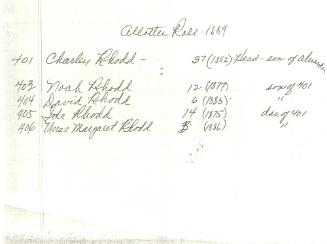 Allottee Roll - 1889
401 Charley Rhodd - 37 (1852) Head - son of Alexander
403 Noah Rhodd 12 (1877) son of 401
404 David Rhodd 6 (1883) - "
405 Ida Rhodd 14 (1875) dau of 401
406 Margaret Rhodd 3 (1886) "